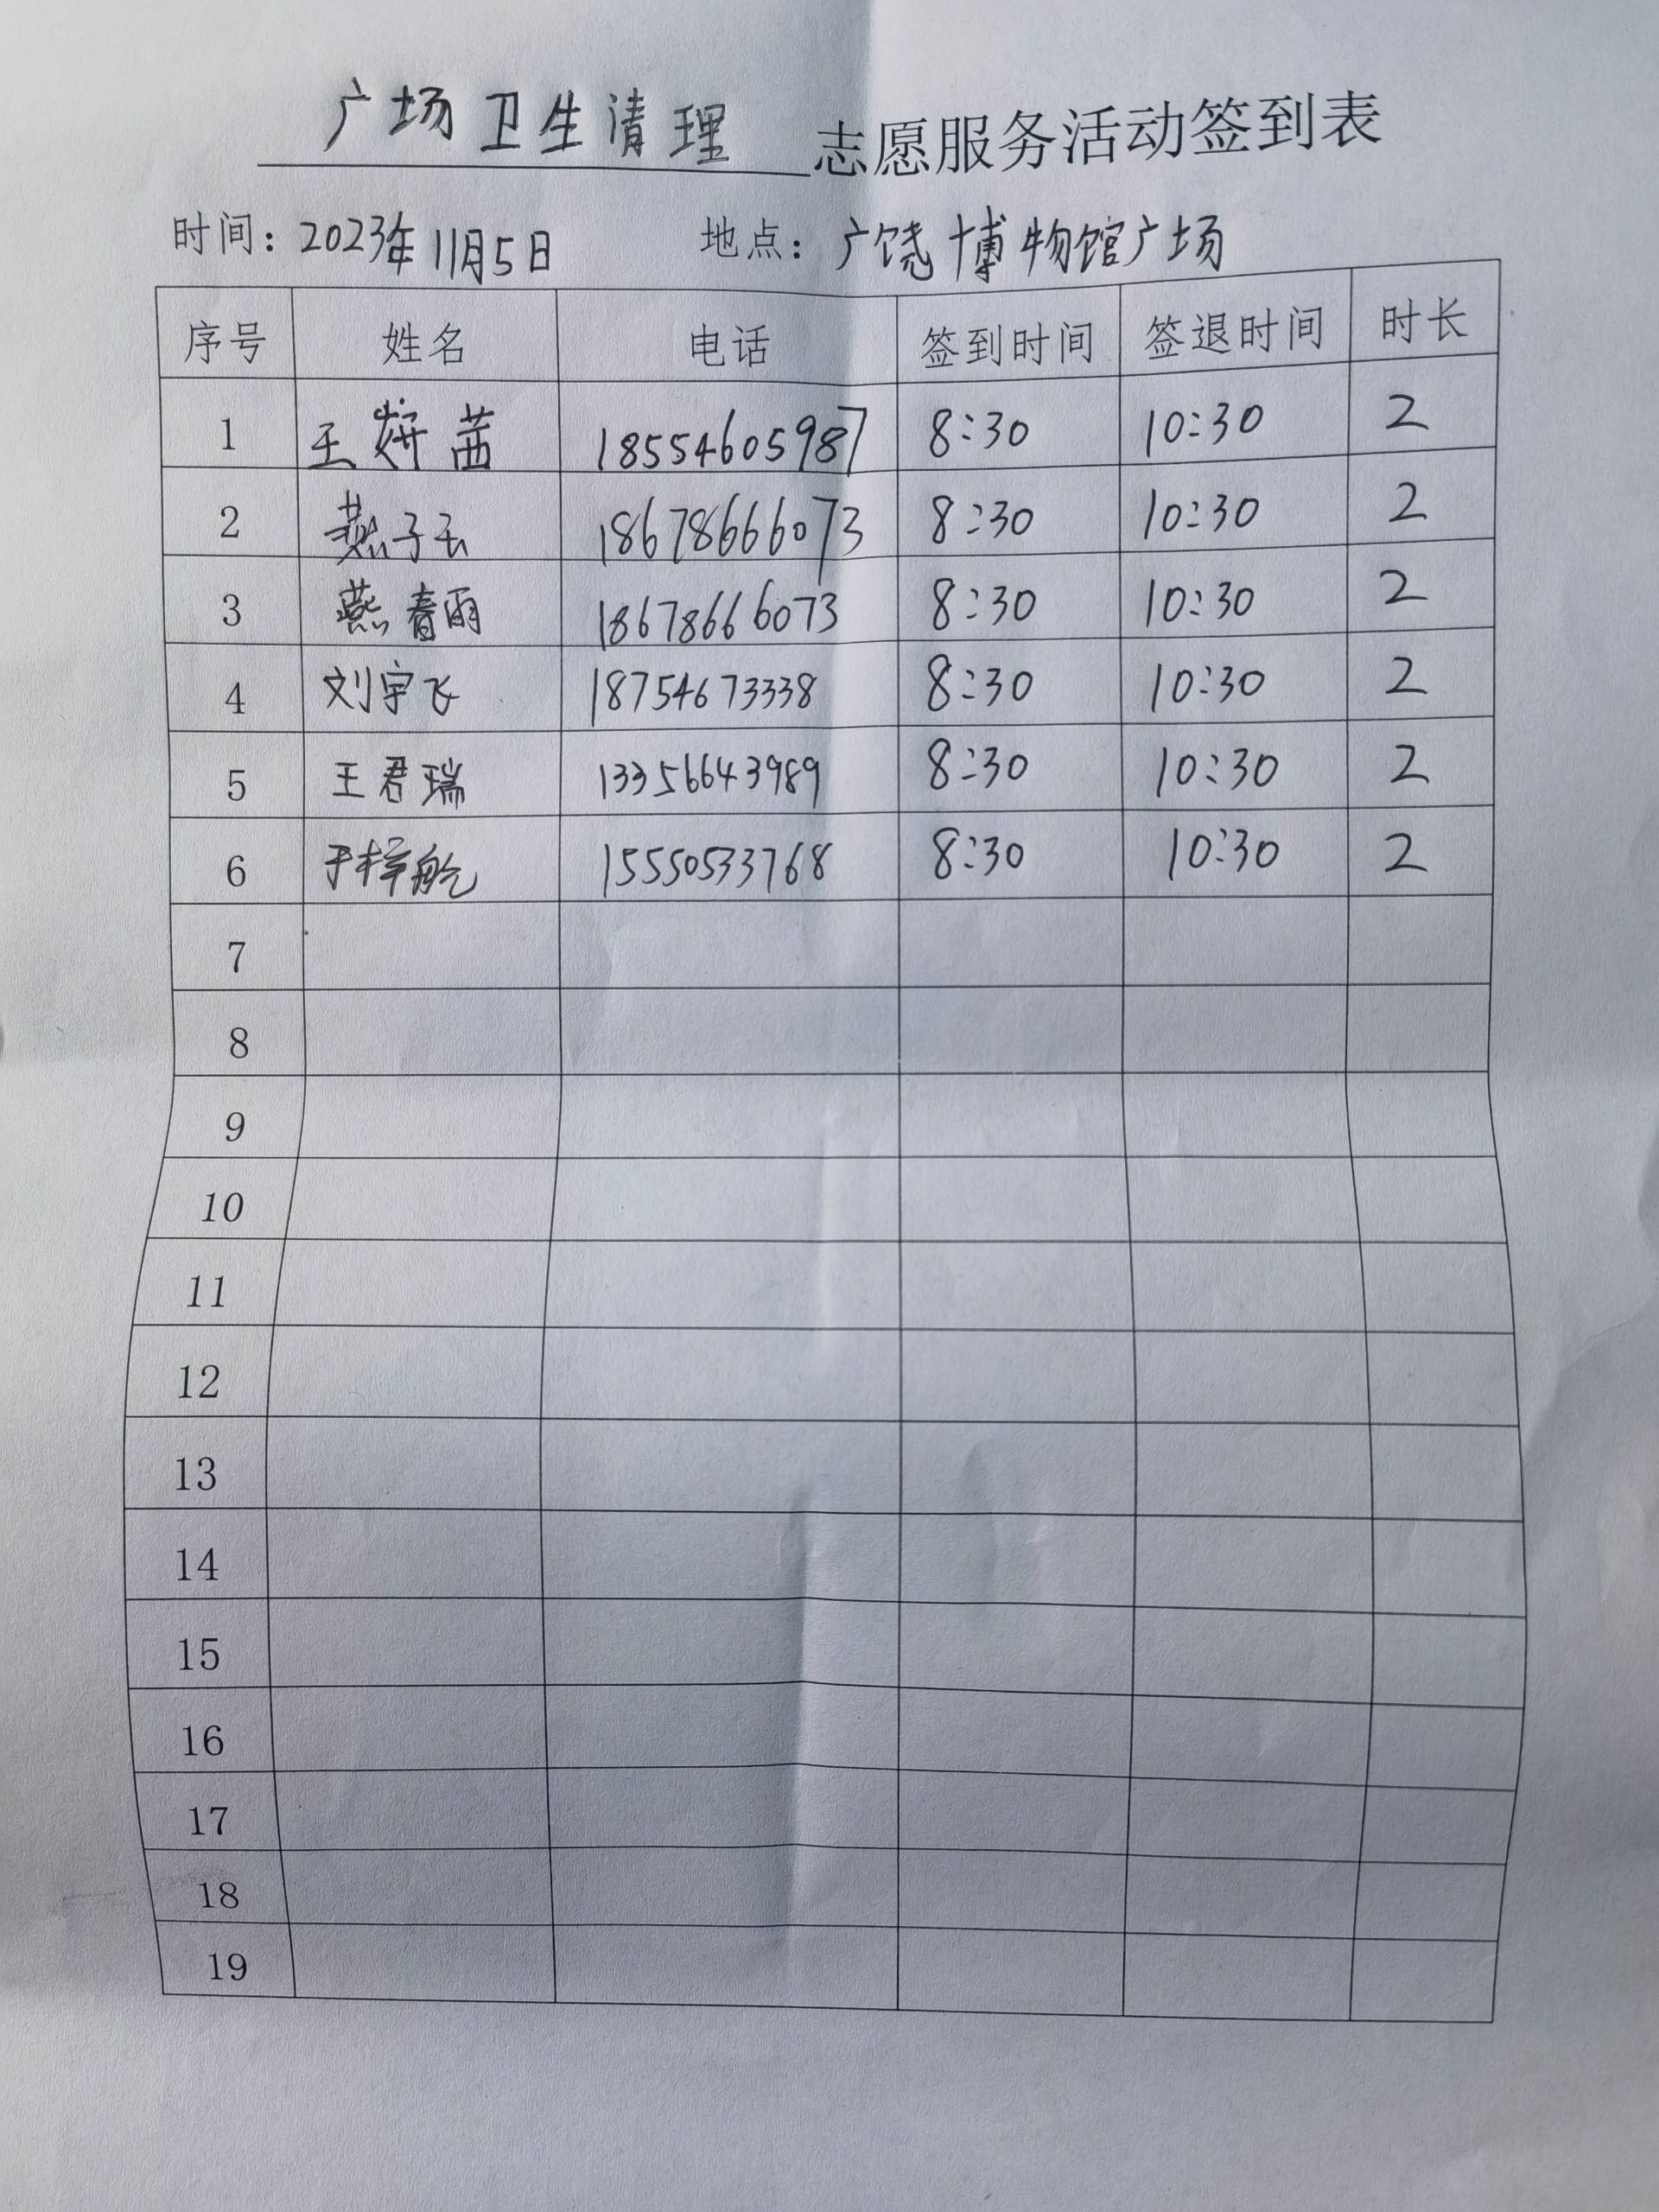 广场卫生清理志愿服务活动签到表
时间：2023年11月5日 地点：广饶博物馆广场
序号 姓名 电话 签到时间 签退时间 时长
1 王妍茜 18554605987 8:30 10:30 2
2 燕子玉 18678666073 8:30 10:30 2
3 燕春雨 18678666073 8:30 10:30 2
4 刘宇飞 18754673338 8:30 10:30 2
5 王君瑞 13356643989 8:30 10:30 2
6 于梓航 15550533768 8:30 10:30 2
7
8
9
10
11
12
13
14
15
16
17
18
19